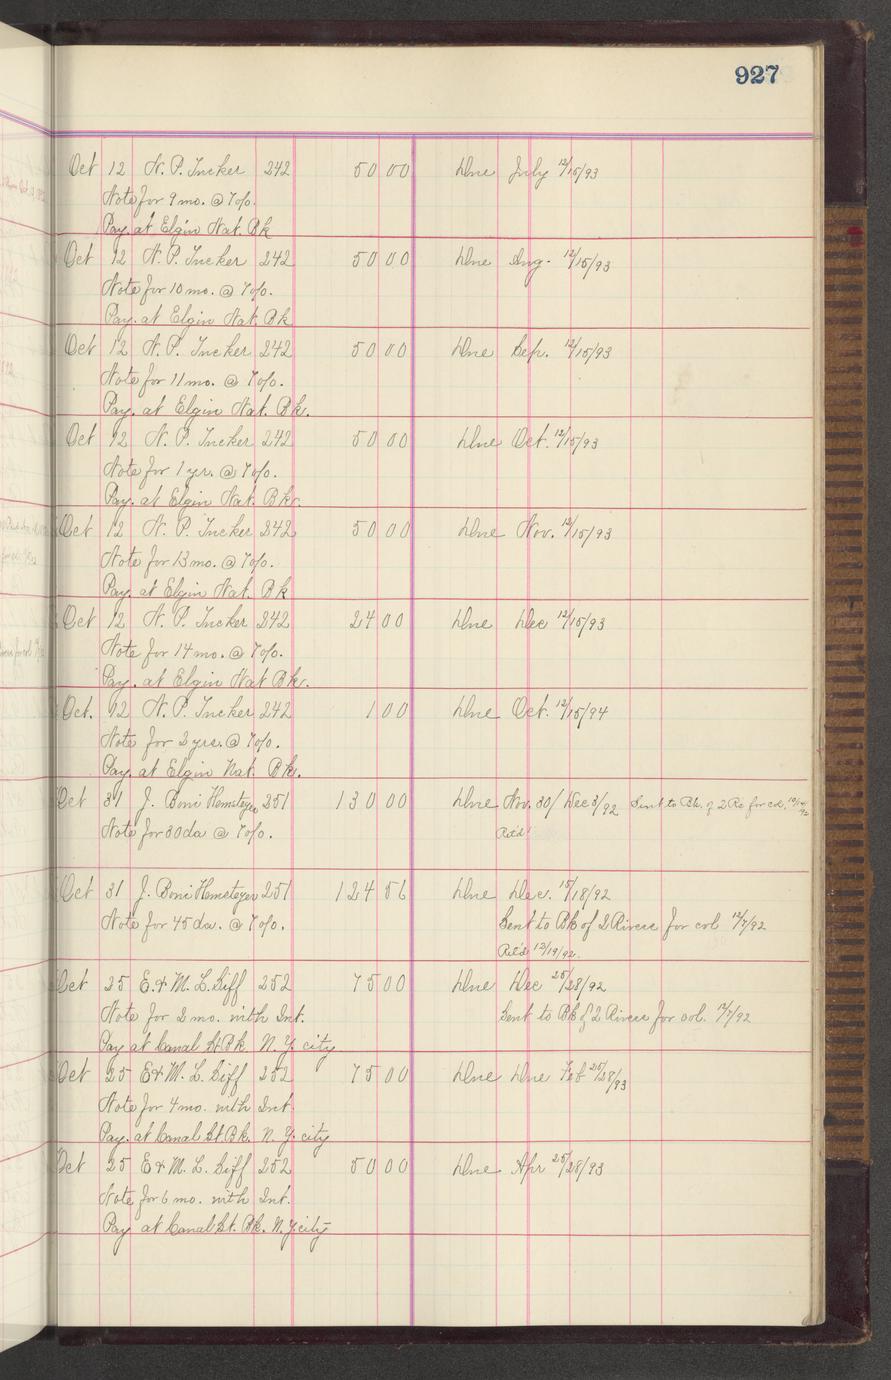 927
Oct 12 N. P. Tucker 242 50 00 Due July 12/15/93
Note for 9 mo. @ 7 o/o.
Pay. at Elgin Nat. Bk
Oct 12 N. P. Tucker 242 50 00 Due Aug. 12/15/93
Note for 10 mo. @ 7 o/o.
Pay. at Elgin Nat. Bk
Oct 12 N. P. Tucker 242 50 00 Due Sep. 12/15/93
Note for 11 mo. @ 7 o/o.
Pay. at Elgin Nat. Bk.
Oct 12 N. P. Tucker 242 50 00 Due Oct. 12/15/93
Note for 1 yr. @ 7 o/o.
Pay. at Elgin Nat. Bk.
Oct 12 N. P. Tucker 242 50 00 Due Nov. 12/15/93
Note for 13 mo. @ 7 o/o.
Pay. at Elgin Nat. Bk
Oct 12 N. P. Tucker 242 24 00 Due Dec 12/15/93
Note for 14 mo. @ 7 o/o.
Pay. at Elgin Nat Bk.
Oct. 12 N. P. Tucker 242 1 00 Due Oct. 12/15/94
Note for 2 yrs. @ 7 o/o.
Pay. at Elgin Nat. Bk.
Oct 31 J. Boni 251 130 00 Due Nov. 30/Dec 3/92 Sent to Bk. of 2 Ri for col.
Note for 30 da @ 7 o/o. Ret'd
Oct 31 J. Boni 251 124 56 Due Dec. 15/18/92
Note for 45 da. @ 7 o/o. Sent to Bk of 2 Rivers for col 12/7/92
Ret'd 12/19/92.
Oct 25 E. & M. L. Siff 252 75 00 Due Dec 25/28/92
Note for 2 mo. with Int. Sent to Bk of 2 Rivers for col. 12/7/92
Pay at Canal St Bk. N. Y. city
Oct 25 E & M. L. Siff 252 75 00 Due Due Feb 25/28/93
Note for 4 mo. with Int.
Pay. at Canal St. Bk. N. Y. city
Oct 25 E & M. L. Siff 252 50 00 Due Apr 25/28/93
Note for 6 mo. with Int.
Pay at Canal St. Bk. N. Y. city